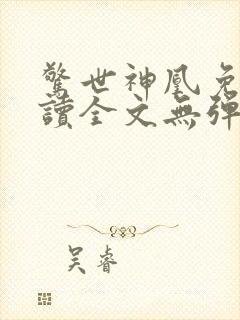 驚世神凰免
讀全文無彈
吴睿